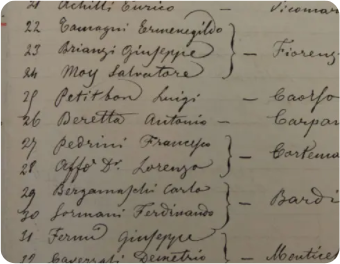 21 Achilli Enrico - Vicomar
22 Tamagni Ermenegildo
23 Brianzi Giuseppe - Fiorenz
24 Moy Salvatore
25 Petitbon Luigi - Caorso
26 Beretta Antonio - Carpan
27 Pedrini Francesco
28 Dr. Lorenzo - Cortema
29 Bergamaschi Carlo
30 Sormani Ferdinando - Bardi
31 Fermi Giuseppe
32 Demetrio - Montice